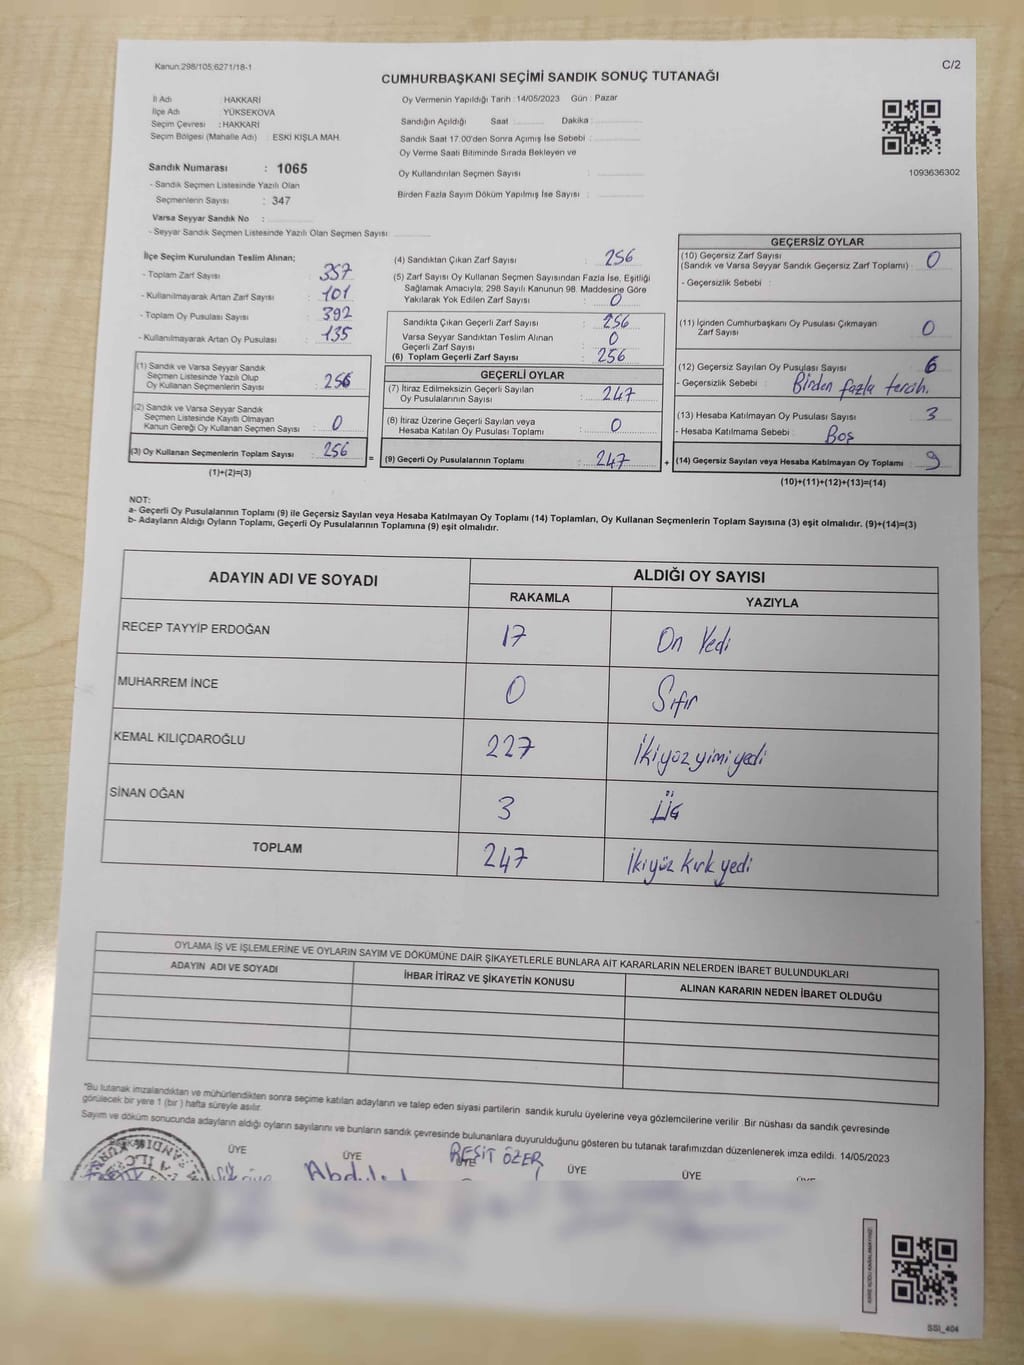 Kanun:298/105;6271/18-1
C/2
CUMHURBAŞKANI SEÇİMİ SANDIK SONUÇ TUTANAĞI
İl Adı : HAKKARİ
İlçe Adı : YÜKSEKOVA
Seçim Çevresi : HAKKARİ
Seçim Bölgesi (Mahalle Adı) : ESKİ KIŞLA MAH.
Sandık Numarası : 1065
- Sandık Seçmen Listesinde Yazılı Olan
Seçmenlerin Sayısı : 347
Varsa Seyyar Sandık No :
- Seyyar Sandık Seçmen Listesinde Yazılı Olan Seçmen Sayısı:
Oy Vermenin Yapıldığı Tarih : 14/05/2023 Gün : Pazar
Sandığın Açıldığı Saat : Dakika :
Sandık Saat 17.00'den Sonra Açımış İse Sebebi :
Oy Verme Saati Bitiminde Sırada Bekleyen ve
Oy Kullandırılan Seçmen Sayısı :
Birden Fazla Sayım Döküm Yapılmış İse Sayısı :
1093636302
İlçe Seçim Kurulundan Teslim Alınan;
- Toplam Zarf Sayısı : 357
- Kullanılmayarak Artan Zarf Sayısı : 101
- Toplam Oy Pusulası Sayısı : 392
- Kullanılmayarak Artan Oy Pusulası : 135
(1) Sandık ve Varsa Seyyar Sandık
Seçmen Listesinde Yazılı Olup
Oy Kullanan Seçmenlerin Sayısı : 256
(2) Sandık ve Varsa Seyyar Sandık
Seçmen Listesinde Kayıtlı Olmayan
Kanun Gereği Oy Kullanan Seçmen Sayısı : 0
(3) Oy Kullanan Seçmenlerin Toplam Sayısı : 256
(1)+(2)=(3)
(4) Sandıktan Çıkan Zarf Sayısı : 256
(5) Zarf Sayısı Oy Kullanan Seçmen Sayısından Fazla İse, Eşitliği
Sağlamak Amacıyla; 298 Sayılı Kanunun 98. Maddesine Göre
Yakılarak Yok Edilen Zarf Sayısı : 0
Sandıkta Çıkan Geçerli Zarf Sayısı : 256
Varsa Seyyar Sandıktan Teslim Alınan
Geçerli Zarf Sayısı : 0
(6) Toplam Geçerli Zarf Sayısı : 256
GEÇERLİ OYLAR
(7) İtiraz Edilmeksizin Geçerli Sayılan
Oy Pusulalarının Sayısı : 247
(8) İtiraz Üzerine Geçerli Sayılan veya
Hesaba Katılan Oy Pusulası Toplamı : 0
= (9) Geçerli Oy Pusulalarının Toplamı : 247 +
GEÇERSİZ OYLAR
(10) Geçersiz Zarf Sayısı
(Sandık ve Varsa Seyyar Sandık Geçersiz Zarf Toplamı) : 0
- Geçersizlik Sebebi :
(11) İçinden Cumhurbaşkanı Oy Pusulası Çıkmayan
Zarf Sayısı : 0
(12) Geçersiz Sayılan Oy Pusulası Sayısı : 6
- Geçersizlik Sebebi : Birden fazla tercih.
(13) Hesaba Katılmayan Oy Pusulası Sayısı : 3
- Hesaba Katılmama Sebebi : Boş
(14) Geçersiz Sayılan veya Hesaba Katılmayan Oy Toplamı : 9
(10)+(11)+(12)+(13)=(14)
NOT:
a- Geçerli Oy Pusulalarının Toplamı (9) ile Geçersiz Sayılan veya Hesaba Katılmayan Oy Toplamı (14) Toplamları, Oy Kullanan Seçmenlerin Toplam Sayısına (3) eşit olmalıdır. (9)+(14)=(3)
b- Adayların Aldığı Oyların Toplamı, Geçerli Oy Pusulalarının Toplamına (9) eşit olmalıdır.
ADAYIN ADI VE SOYADI
ALDIĞI OY SAYISI
RAKAMLA YAZIYLA
RECEP TAYYİP ERDOĞAN 17 On Yedi
MUHARREM İNCE 0 Sıfır
KEMAL KILIÇDAROĞLU 227 İkiyüz yimi yedi
SİNAN OĞAN 3 Üç
TOPLAM 247 İkiyüz kırk yedi
OYLAMA İŞ VE İŞLEMLERİNE VE OYLARIN SAYIM VE DÖKÜMÜNE DAİR ŞİKAYETLERLE BUNLARA AİT KARARLARIN NELERDEN İBARET BULUNDUKLARI
ADAYIN ADI VE SOYADI İHBAR İTİRAZ VE ŞİKAYETİN KONUSU ALINAN KARARIN NEDEN İBARET OLDUĞU
"Bu tutanak imzalandıktan ve mühürlendikten sonra seçime katılan adayların ve talep eden siyasi partilerin sandık kurulu üyelerine veya gözlemcilerine verilir. Bir nüshası da sandık çevresinde
görülecek bir yere 1 (bir) hafta süreyle asılır.
Sayım ve döküm sonucunda adayların aldığı oyların sayılarını ve bunların sandık çevresinde bulunanlara duyurulduğunu gösteren bu tutanak tarafımızdan düzenlenerek imza edildi. 14/05/2023
ÜYE ÜYE ÜYE ÜYE ÜYE
REŞİT ÖZER
SSI_404